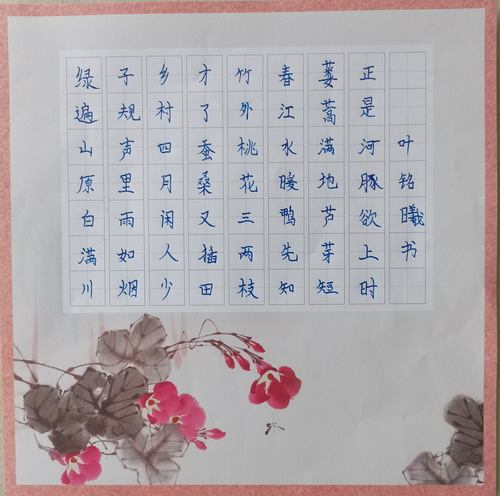 绿遍山原白满川
子规声里雨如烟
乡村四月闲人少
才了蚕桑又插田
竹外桃花三两枝
春江水暖鸭先知
蒌蒿满地芦芽短
正是河豚欲上时
叶铭曦书